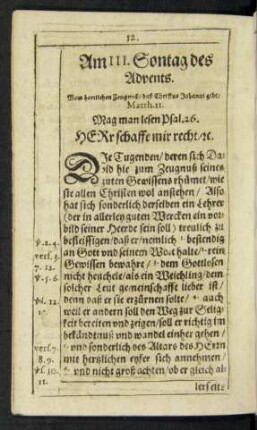 12.
Am III. Sontag des
Advents.
Vom herrlichen Zeugnuß / das Christus Johanni gibt /
Matth. 11.
Mag man lesen Psal. 26.
HERr schaffe mir recht / ꝛc.
Die Tugenden / deren sich Da-
vid hie zum Zeugnuß seines
guten Gewissens rhümet / wie
sie allen Christen wol anstehen / Also
hat sich sonderlich derselben ein Lehrer
(der in allerley guten Wercken ein vor-
bild seiner Heerde sein soll) treulich zu
v. 1. 4. befleissigen / daß er nemlich beständig
vers. 3. an Gott und seinem Wort halte / ein
7. 12. Gewissen bewahre / dem Gottlosen
v. 5. nicht heuchele / als ein Weichling / dem
solcher Leut gemeinschafft lieber ist /
vs. 12. denn daß er sie erzürnen solte / auch
17. weil er andern soll den Weg zur Selig-
keit bereiten und zeigen / soll er richtig im
bekändtnuß und wandel einher gehen /
vers. 7. und sonderlich des Altars des HErrn
8. 9. mit hertzlichen eyfer sich annehmen /
vs. 10. und nicht groß achten / ob er gleich al-
11.
lerseits